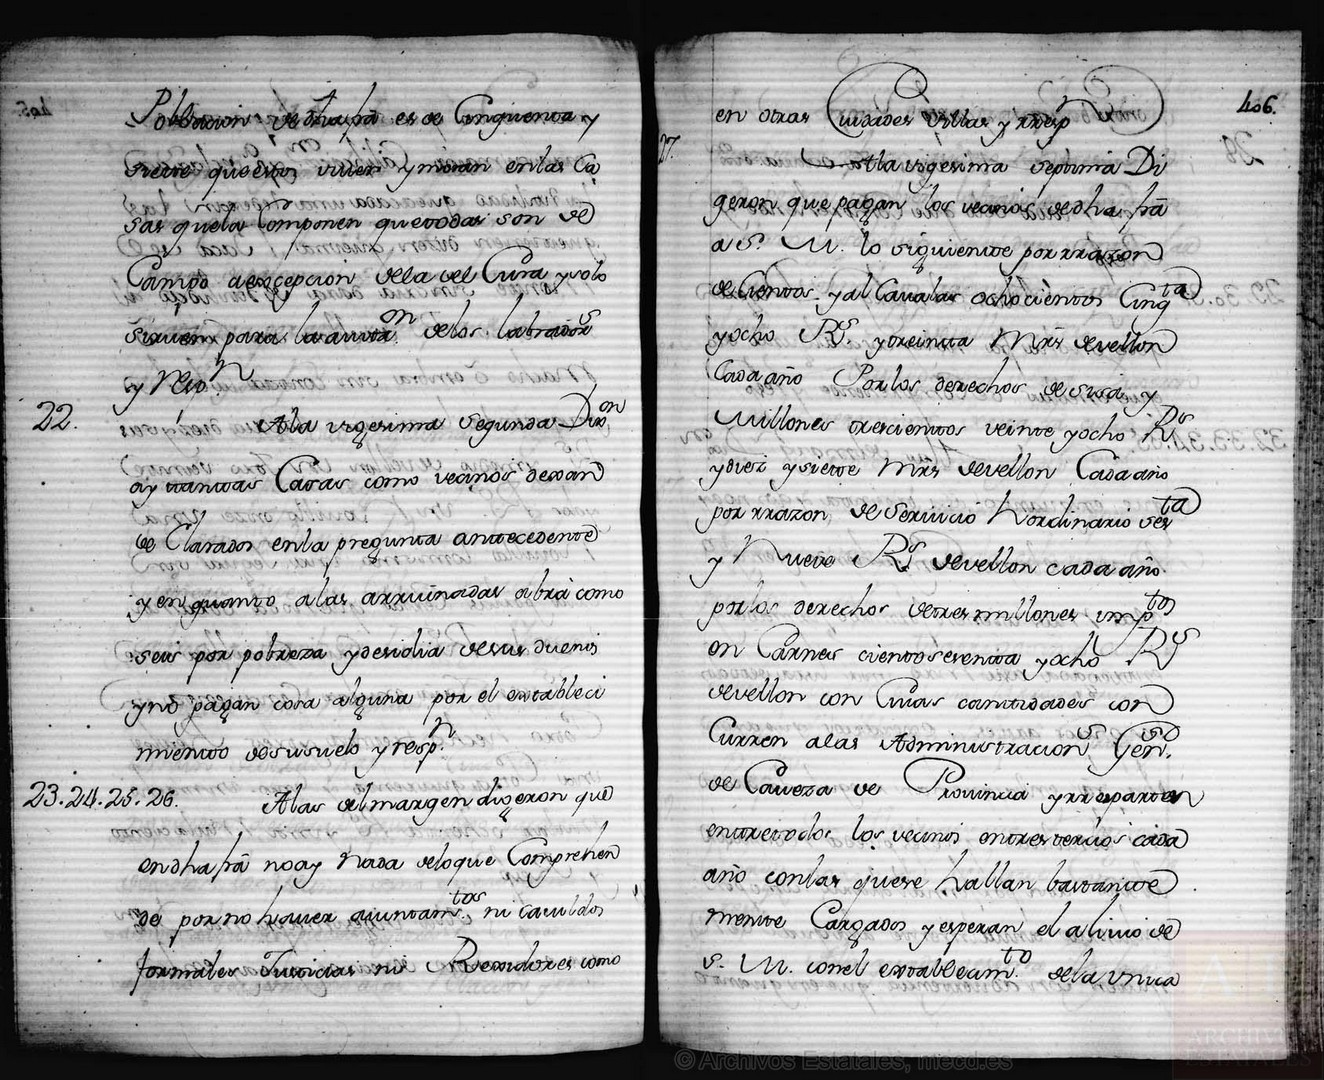 Poblacion de dha frã es de Cinquenta y
siete questos viven y moran en las Ca
sas quela Componen quetodas son de
Campo a excepcion dela del Cura y solo
sirven para la avitaon delos labradors
y Respn
22. Ala vigesima segunda Dixon
ay tantas Casas como vecinos dexan
de Clarados enla pregunta antecedente
y en quanto alas arruinadas abrà como
seis por pobreza y desidia de sus duenos
yno pagan cosa alguna por el estableci
miento do su suelo y respn
23.24.25.26. Alas del margen digeron que
endha frã no ay Nada delo que Comprehen
de por no haver aiuntamtos, ni cavildos
formales Justicias ni Rexidores como
406.
en otras Ciudades Villas y rresp
27. Ala vigesima septima Di
geron que pagan los vecinos dedha frã
a S. M. lo siguiente por rrazon
de Cientos y al Cavalas ochocientos Cinqta
y ocho Rs. y treinta Mrs devellon
Cada año Por los derechos de sisa y
Millones trescientos veinte y ocho Rs
y diez y siete Mrs devellon Cada año
por rrazon de Servicio hordinario sesta
y Nueve Rs devellon cada año
por los derechos detres millones imptos
en Carnes ciento sesenta y ocho Rs
devellon con Cuias cantidades con
Curren alas Administracions Gens.
de Caveza de Provincia y rreparten
entretodos los vecinos entres tercios cada
año conlas quese hallan bastante
mente Cargados y esperan el alivio de
S. M. conel estableamto dela Unica
© Archivos Estatales, mecd.es
ARCHIVOS
ESTATALES